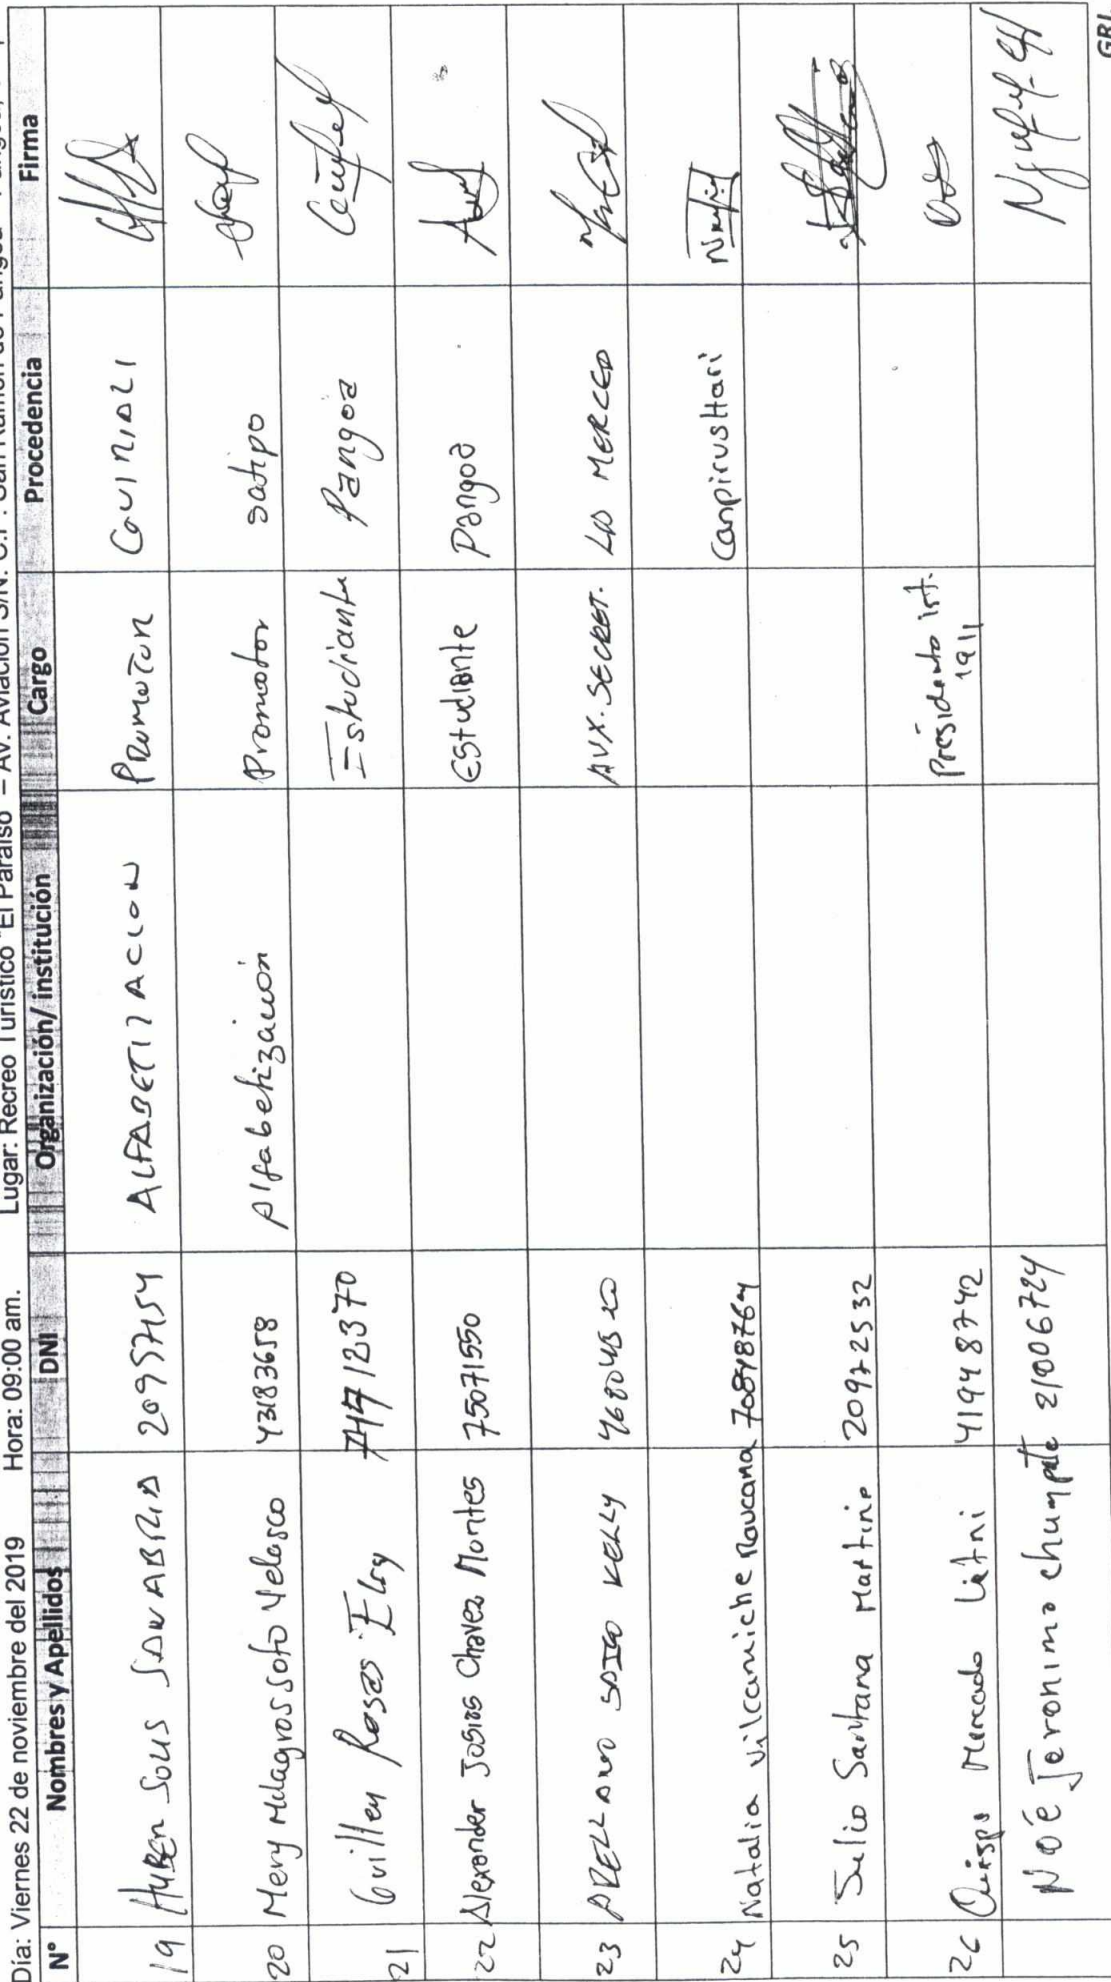 Día: Viernes 22 de noviembre del 2019 Hora: 09:00 am. Lugar: Recreo Turístico "El Paraíso" – Av. Aviación S/N. C.P. San Ramón de Pangoa
N° Nombres y Apellidos DNI Organización/ institución Cargo Procedencia Firma
19 SANABRIA 20957154 ALFABETIZACION PROMOTOR
20 Mery Milagros Soto Velasco 43183658 Alfabetización Promotor satipo
21 Guillen Rosas Elsy Estudiante Pangoa
22 Alexander Josias Chavez Montes 75071550 Estudiante Pangoa
23 ARELLANO KELLY AUX. SECRET. LA MERCED
24 Natalia Vilcamiche 70848764 Canpirushari
25 Julio Santana Martinez 20972532
26 Quispe Mercado 41948742 Presidente inst.
1911
Noé Jeronimo chumpate 21006724
GRJ